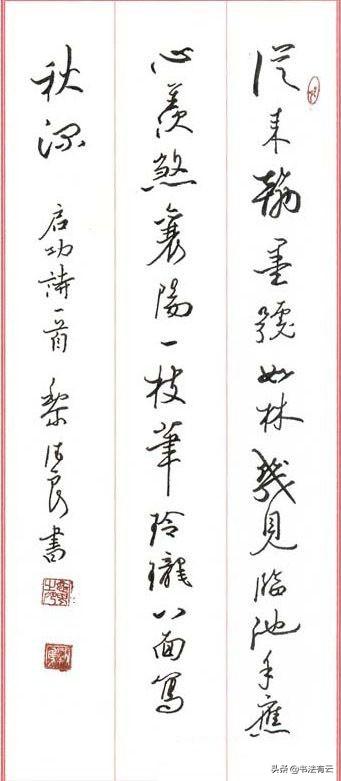 從来翰墨號如林幾見臨池手應
心羡煞襄陽一枝筆玲瓏八面寫
秋深
启功詩一首 黎良書
头条@书法有云